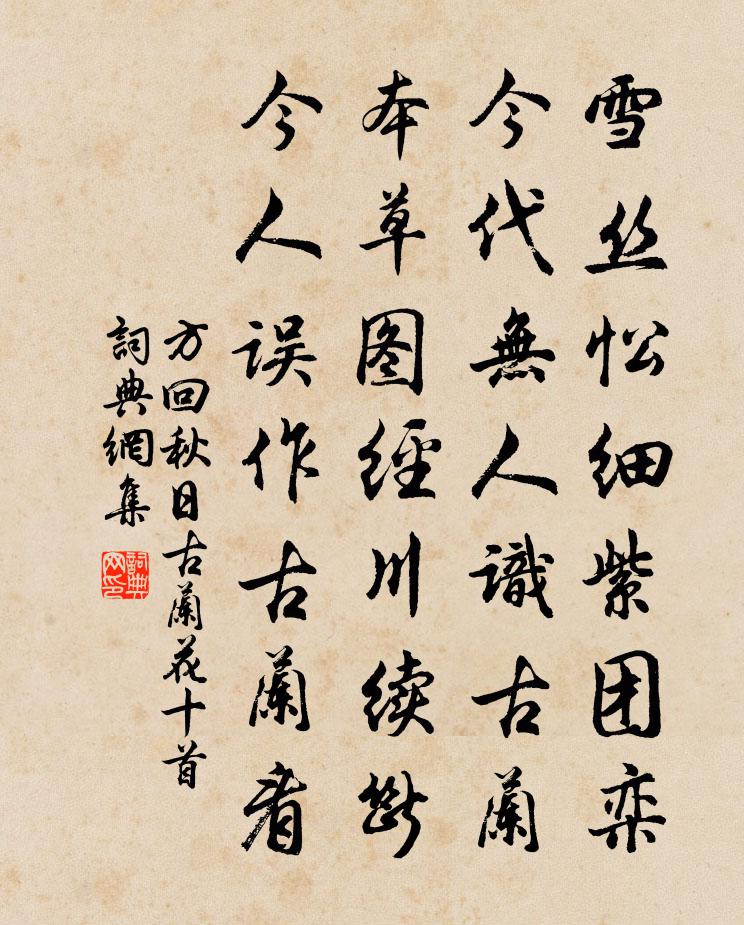 雪丝忪细紫团栾
今代無人識古蘭
本草图經川续断
今人误作古蘭看
方回秋日古蘭花十首
詞典網集
詞典网印